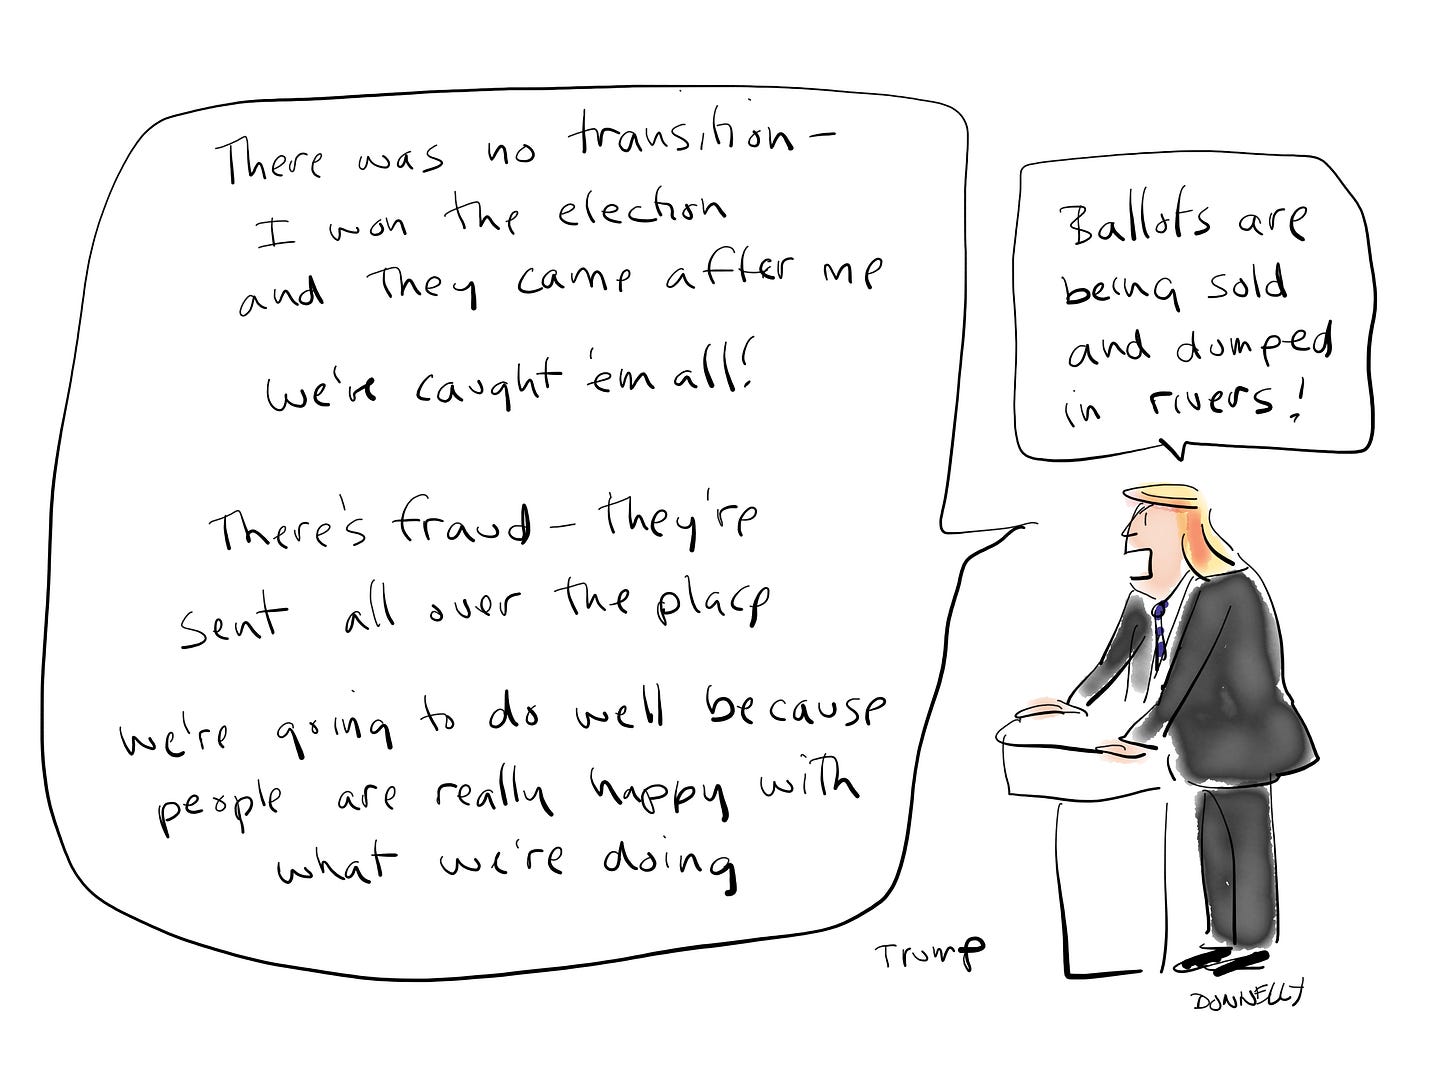 There was no transition –
I won the election
and they came after me
we've caught 'em all!
There's fraud – they're
sent all over the place
we're going to do well because
people are really happy with
what we're doing
Ballots are
being sold
and dumped
in rivers!
Trump
DONNELLY